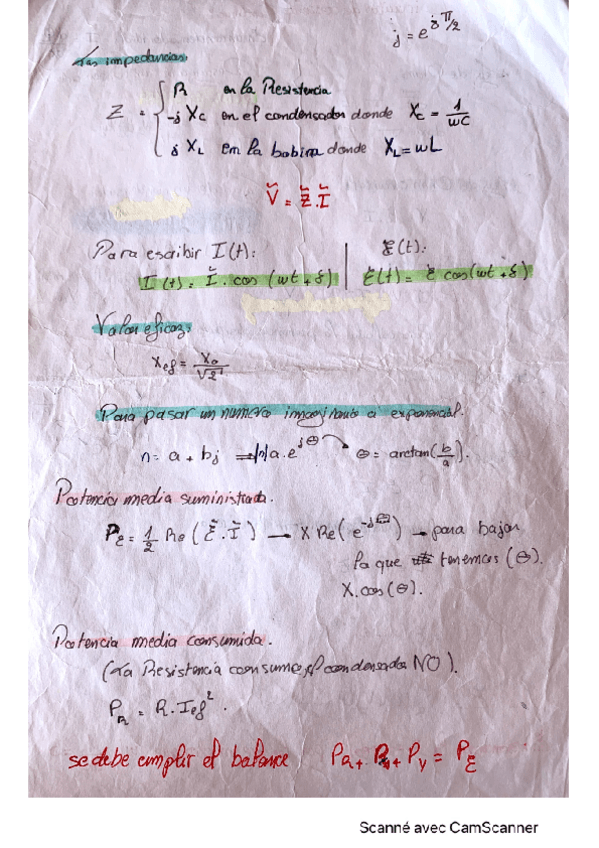 j = e^{j π/2}
Las impedancias:
Z = { R en la Resistencia
-j Xc en el condensador donde Xc = 1/wC
j XL em la bobina donde XL = wL
V̆ = Z̆ . Ĭ
Para escribir I(t): | ℰ(t):
I(t) = Ĭ . cos (wt + δ) | ℰ(t) = ℰ cos(wt + δ)
Valor eficaz:
Xef = Xo/√2
Para pasar un numero imaginario a exponencial.
n = a + bj ⇒ |n| a . e^{jΘ} Θ = arctan(b/a).
Potencia media suministrada.
Pℰ = 1/2 Re (ℰ̆ . Ĭ) → X Re(e^{-jΘ}) → para bajar
la que tenemos (Θ).
X.cos(Θ).
Potencia media consumida.
(La Resistencia consume, el condensador NO).
P_R = R . Ief².
se debe cumplir el balance Pa + Pu + Pv = Pℰ
Scanné avec CamScanner